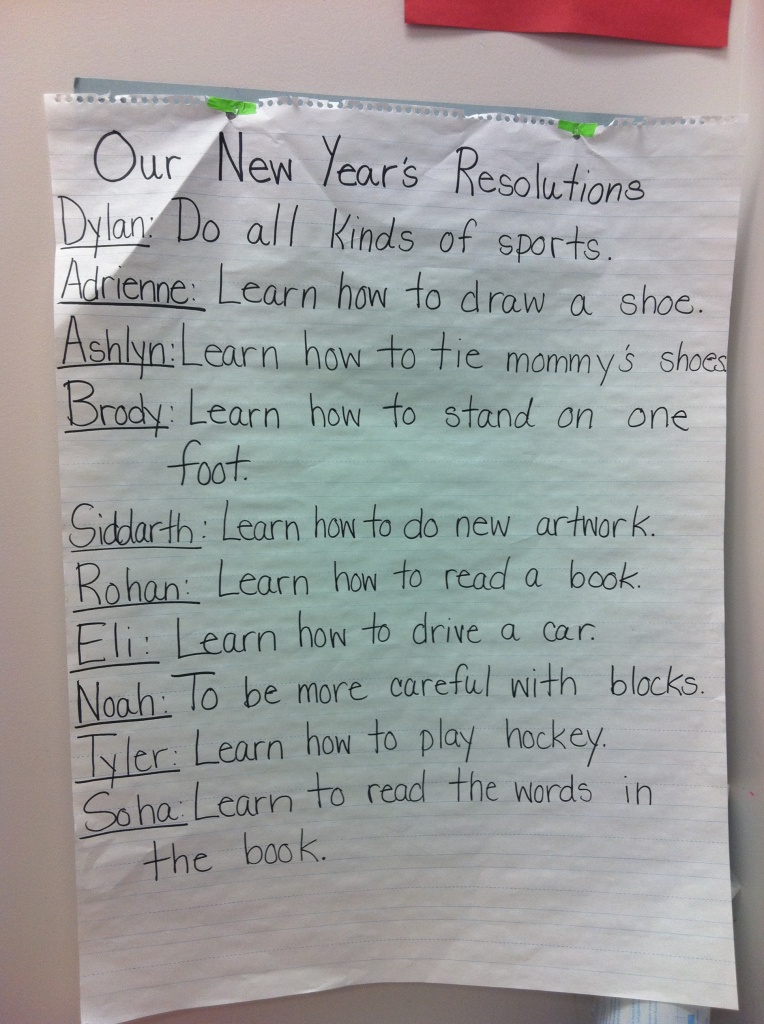 Our New Year's Resolutions
Dylan: Do all kinds of sports.
Adrienne: Learn how to draw a shoe.
Ashlyn: Learn how to tie mommy's shoes
Brody: Learn how to stand on one
foot.
Siddarth: Learn how to do new artwork.
Rohan: Learn how to read a book.
Eli: Learn how to drive a car.
Noah: To be more careful with blocks.
Tyler: Learn how to play hockey.
Soha: Learn to read the words in
the book.